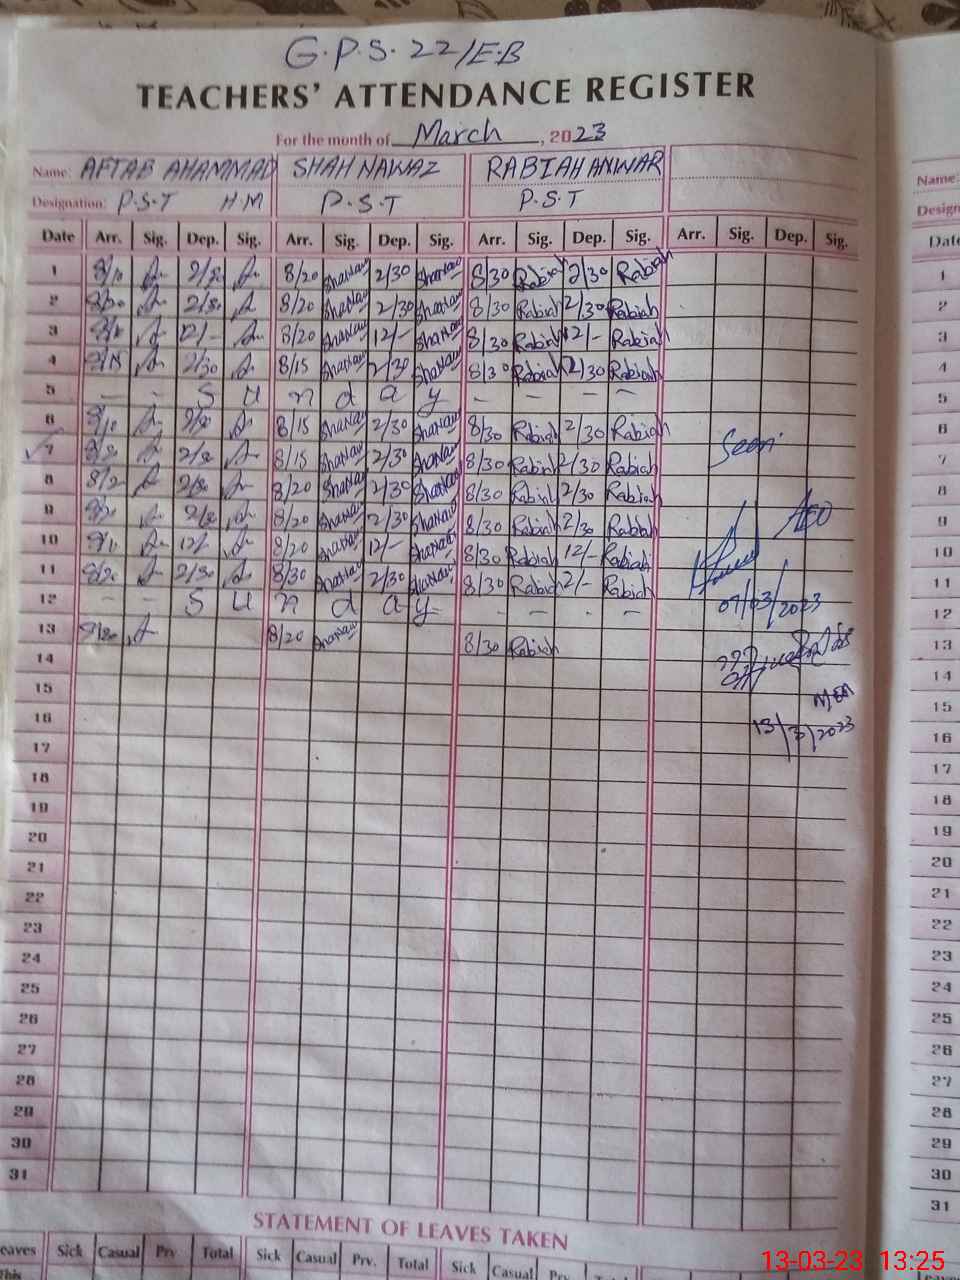 G.P.S. 22/E.B
TEACHERS' ATTENDANCE REGISTER
For the month of March, 2023
Name: AFTAB AHAMMAD SHAH NAWAZ RABIAH ANWAR
Designation: P.S.T H.M P.S.T P.S.T
Date Arr. Sig. Dep. Sig. Arr. Sig. Dep. Sig. Arr. Sig. Dep. Sig. Arr. Sig. Dep. Sig.
1 8/10 2/30 8/20 ShaNawaz 2/30 ShaNawaz 8/30 Rabiah 2/30 Rabiah
2 8/20 2/30 8/20 ShaNawaz 2/30 ShaNawaz 8/30 Rabiah 2/30 Rabiah
3 8/10 12/- 8/20 ShaNawaz 12/- ShaNawaz 8/30 Rabiah 12/- Rabiah
4 8/15 2/30 8/15 ShaNawaz 2/30 ShaNawaz 8/30 Rabiah 2/30 Rabiah
5 - - S u n d a y - - - -
6 8/10 2/30 8/15 ShaNawaz 2/30 ShaNawaz 8/30 Rabiah 2/30 Rabiah
7 8/20 2/30 8/15 ShaNawaz 2/30 ShaNawaz 8/30 Rabiah 2/30 Rabiah Seen
8 8/20 2/30 8/20 ShaNawaz 2/30 ShaNawaz 8/30 Rabiah 2/30 Rabiah
9 8/20 2/30 8/20 ShaNawaz 2/30 ShaNawaz 8/30 Rabiah 2/30 Rabiah AEO
10 8/10 12/- 8/20 ShaNawaz 12/- ShaNawaz 8/30 Rabiah 12/- Rabiah
11 8/20 2/30 8/30 ShaNawaz 2/30 ShaNawaz 8/30 Rabiah 2/- Rabiah
12 - - S u n d a y - - - - 07/03/2023
13 8/20 8/20 ShaNawaz 8/30 Rabiah
14
15 MEA
16 13/3/2023
17
18
19
20
21
22
23
24
25
26
27
28
29
30
31
STATEMENT OF LEAVES TAKEN
eaves Sick Casual Prv. Total Sick Casual Prv. Total Sick Casual Prv.
This
Name:
Design
Date
1
2
3
4
5
6
7
8
9
10
11
12
13
14
15
16
17
18
19
20
21
22
23
24
25
26
27
28
29
30
31
13-03-23 13:25